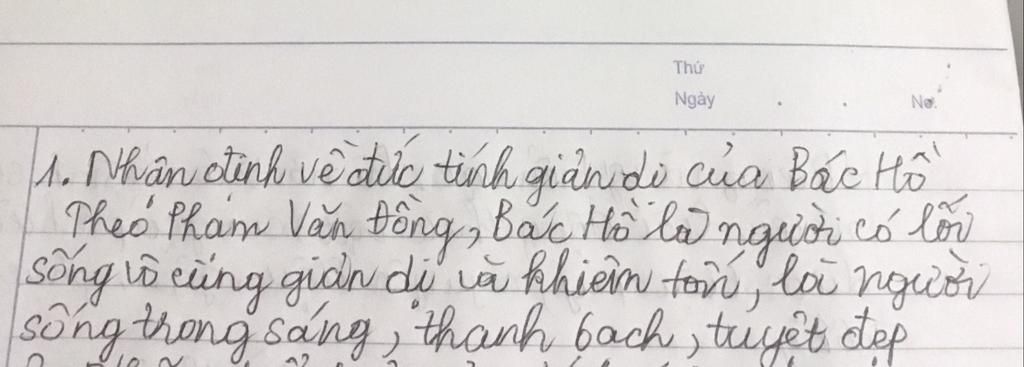 Thứ
Ngày
No.
1. Nhận định về đức tính giản dị của Bác Hồ
Theo Phạm Văn Đồng, Bác Hồ là người có lối
sống vô cùng giản dị và khiêm tốn, là người
sống trong sáng, thanh bạch, tuyệt đẹp